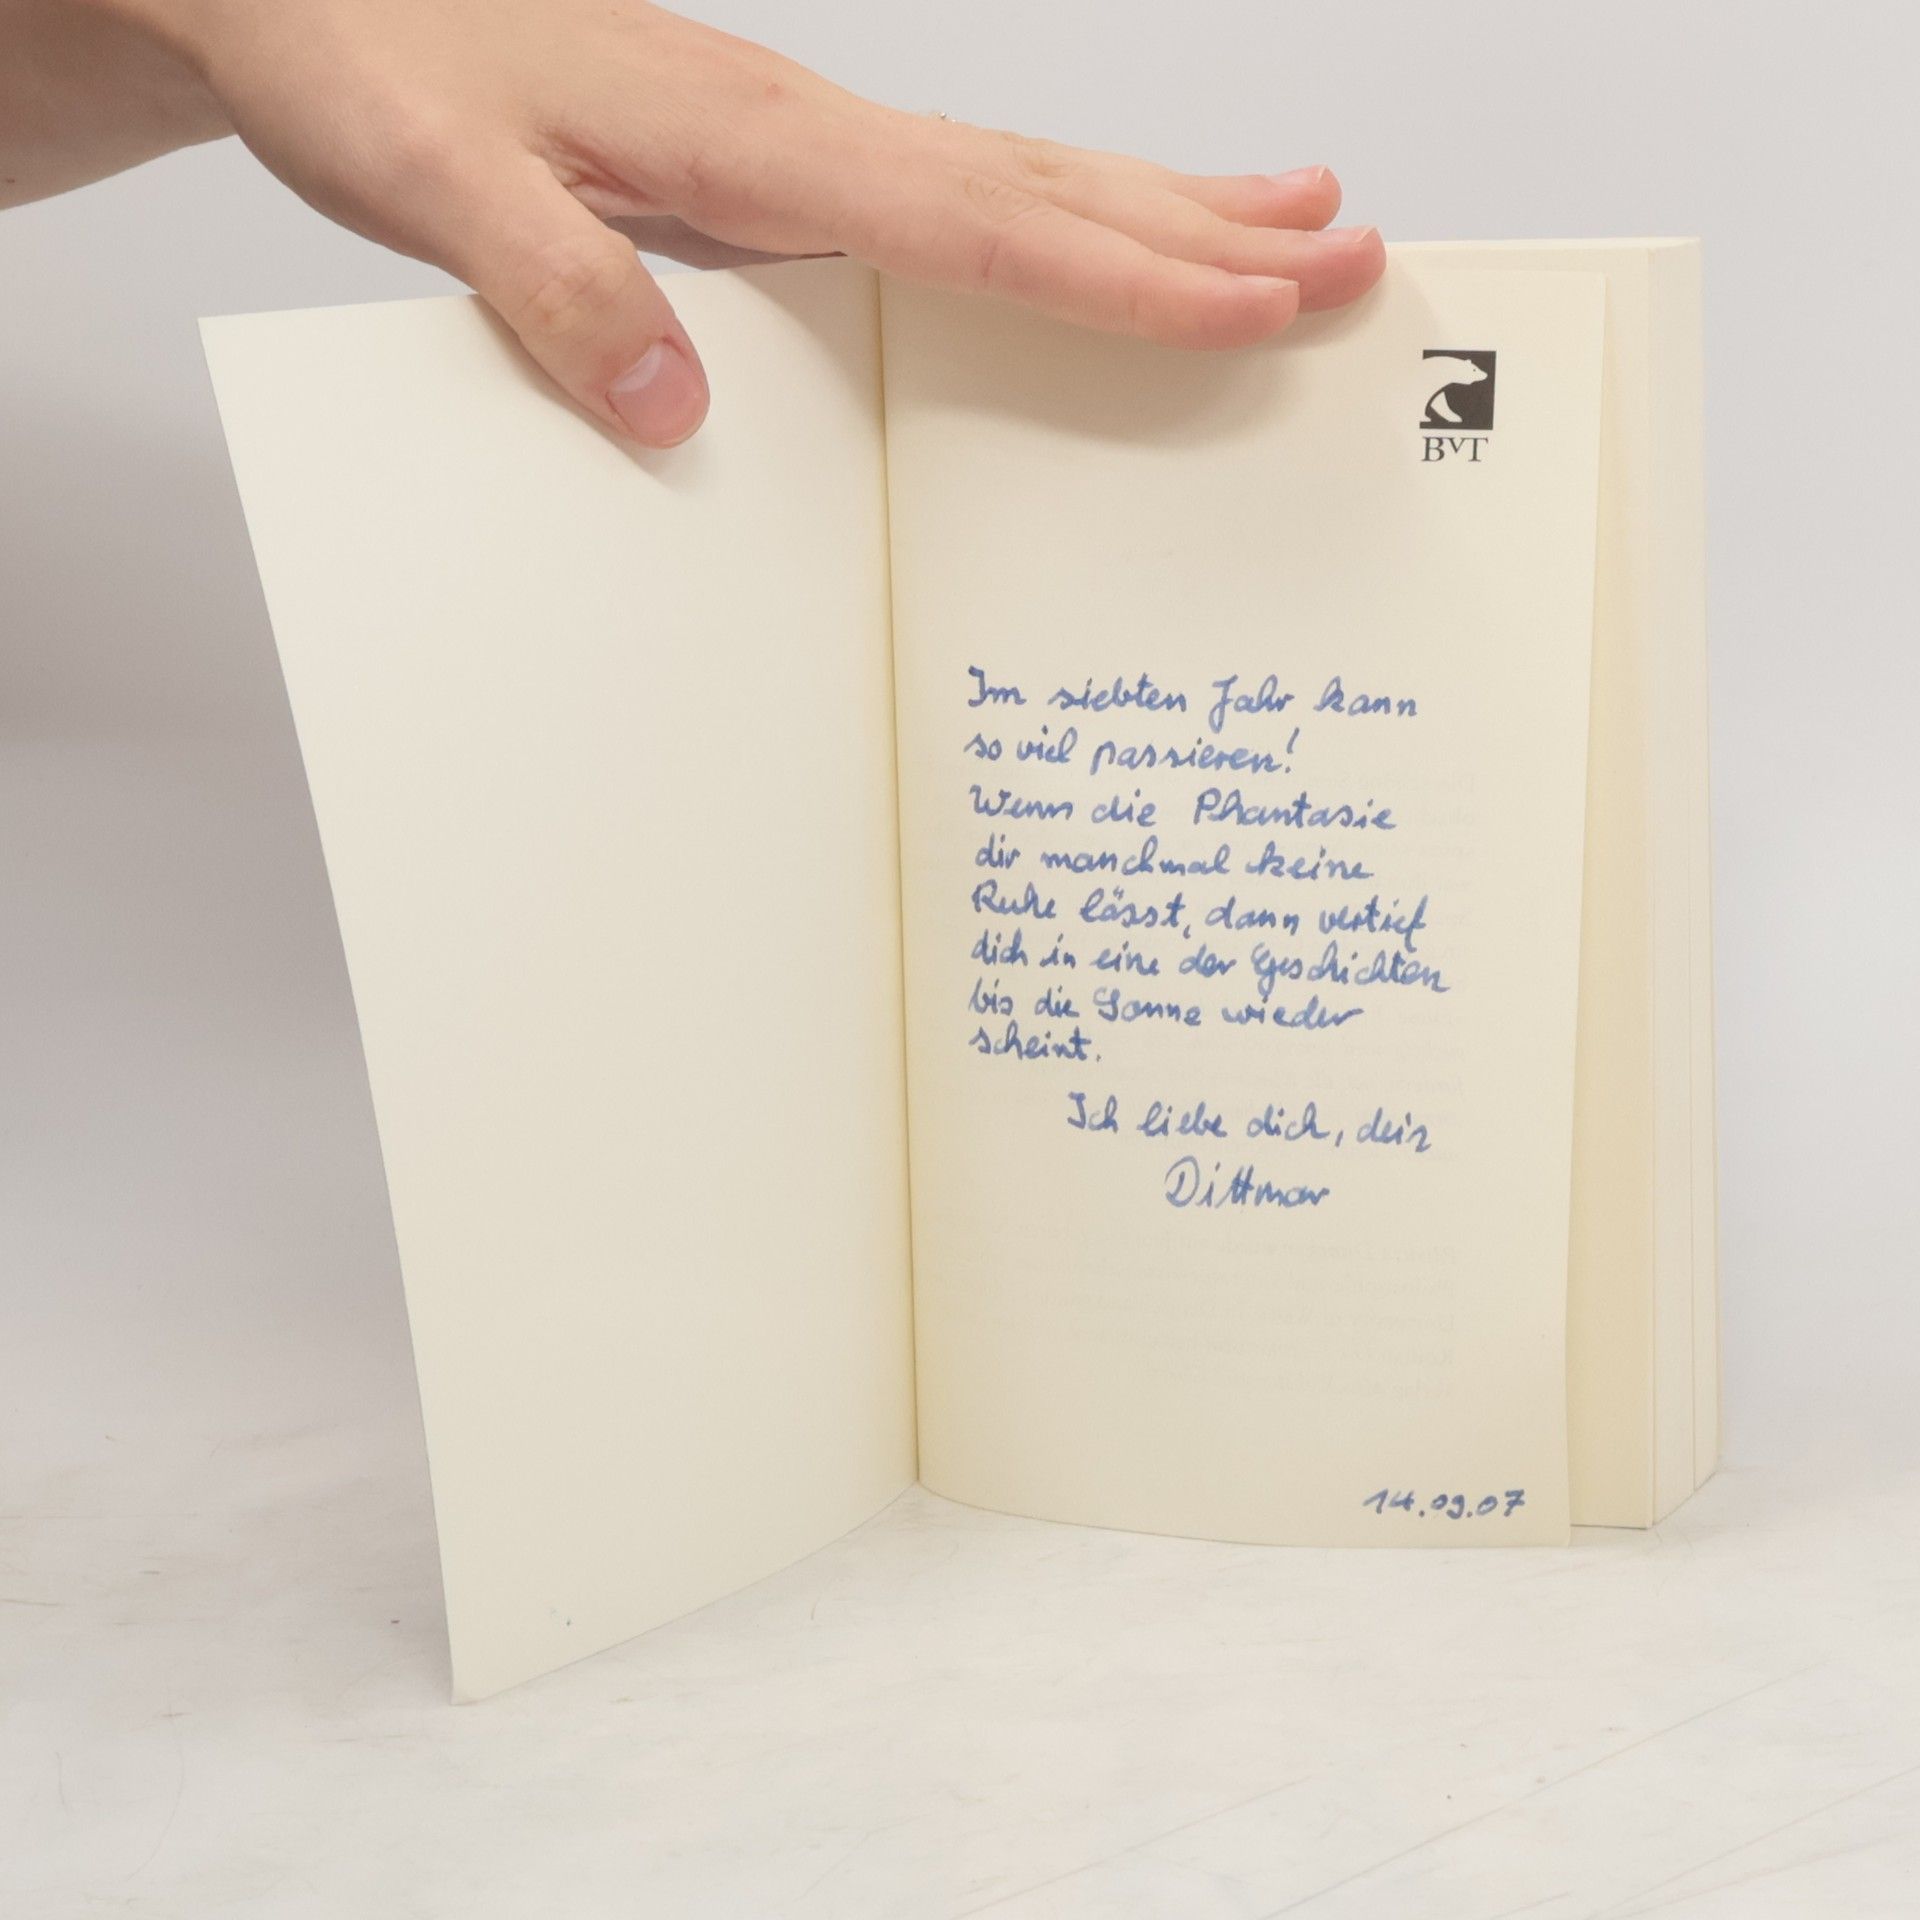 BvT
Im siebten Jahr kann
so viel passieren!
Wenn die Phantasie
dir manchmal keine
Ruhe lässt, dann vertief
dich in eine der Geschichten
bis die Sonne wieder
scheint.
Ich liebe dich, dein
Dittmar
14.09.07